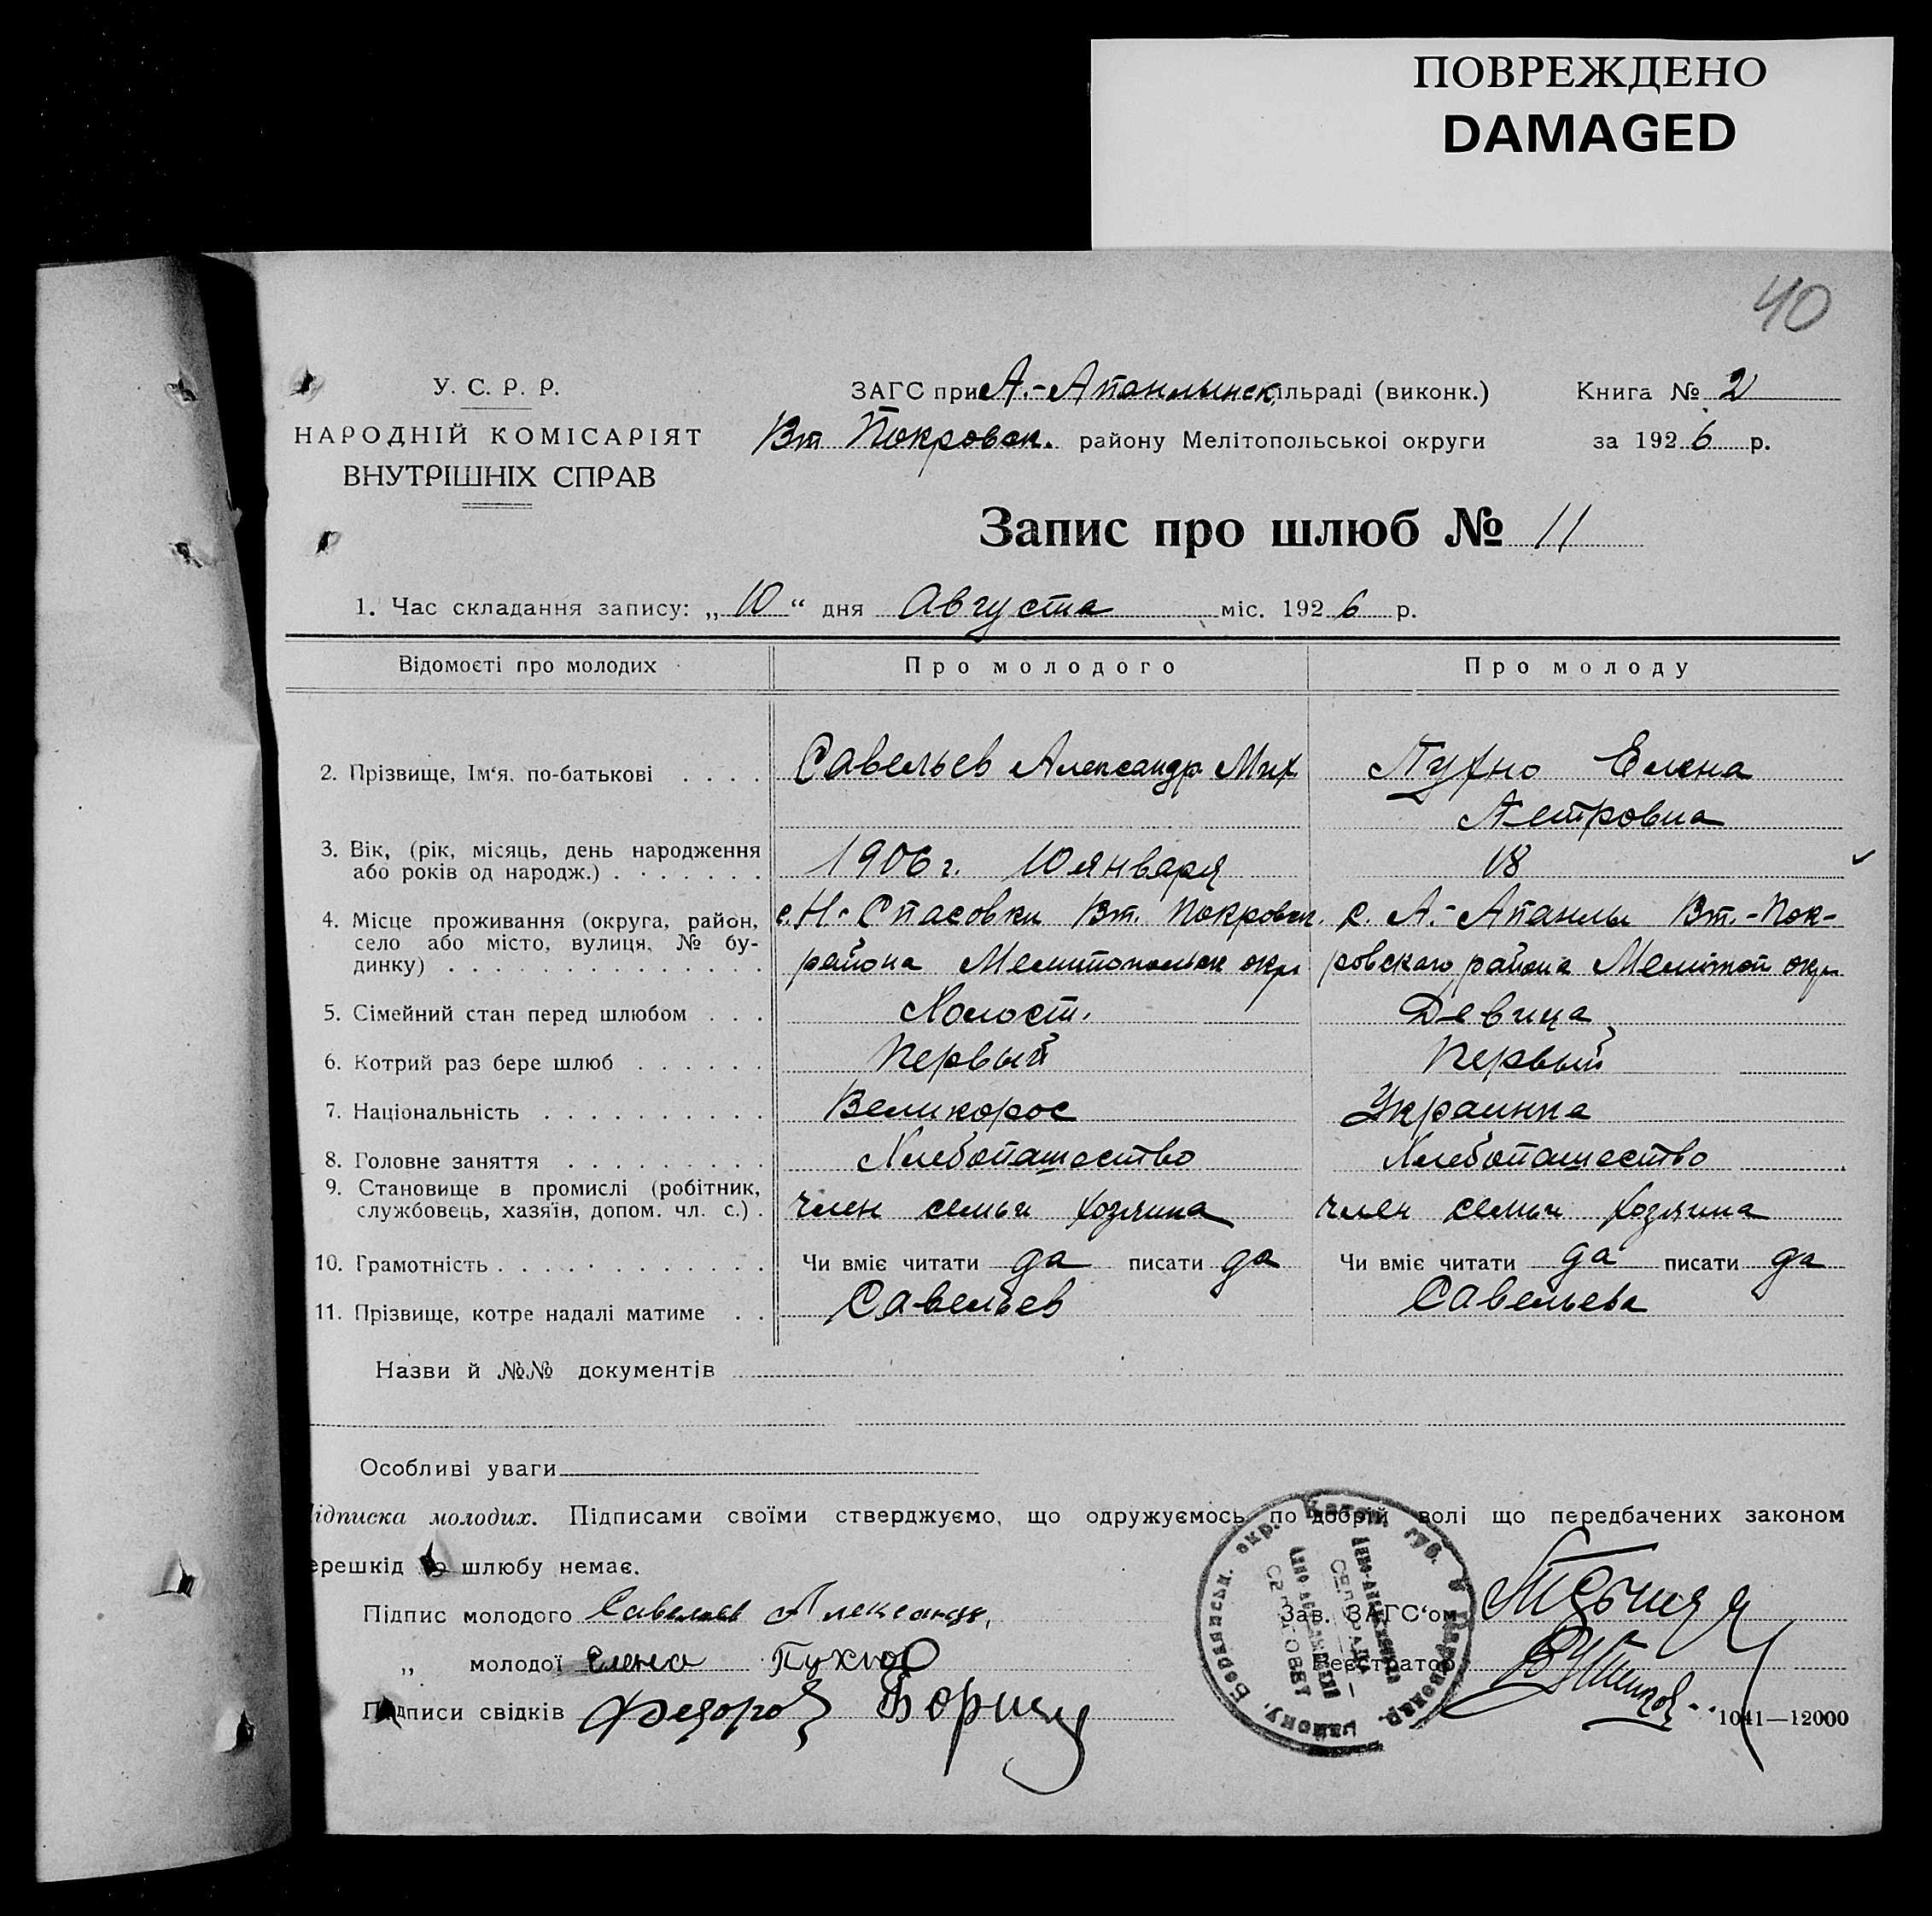 ПОВРЕЖДЕНО
DAMAGED
40
У. С. Р. Р.
НАРОДНІЙ КОМІСАРІЯТ
ВНУТРІШНІХ СПРАВ
ЗАГС при А.-Апанлынск. ільраді (виконк.)
Вт Покровск. району Мелітопольської округи
Книга № 2
за 1926 р.
Запис про шлюб № 11
1. Час складання запису: „10“ дня Августа міс. 1926 р.
Відомості про молодих Про молодого Про молоду
2. Прізвище, Ім'я, по-батькові . . . . Савельев Александр Мих Пухно Елена
Петровна
3. Вік, (рік, місяць, день народження
або років од народж.) . . . . . . . 1906 г. 10 января 18
4. Місце проживання (округа, район, с. Н.-Спасовки Вт. Покровск. с. А.-Апанлы Вт.-Пок-
село або місто, вулиця, № бу-
динку) . . . . . . . . . . . . . . района Мелитопольск окр ровского района Мелитоп окр
5. Сімейний стан перед шлюбом . . . Холост. Девица
6. Котрий раз бере шлюб . . . . . . Первый Первый
7. Національність . . . . . . . . . . Великорос Украинка
8. Головне заняття . . . . . . . . . Хлебопашество Хлебопашество
9. Становище в промислі (робітник,
службовець, хазяїн, допом. чл. с.) . член семьи хозяина член семьи хозяина
10. Грамотність . . . . . . . . . . . . Чи вміє читати да писати да Чи вміє читати да писати да
11. Прізвище, котре надалі матиме . . Савельев Савельева
Назви й №№ документів
Особливі уваги
ідписка молодих. Підписами своїми стверджуємо, що одружуємось по добрій волі що передбачених законом
ерешкід до шлюбу немає.
Підпис молодого Савельев Александр,
Зав. ЗАГС'ом
„ молодої Елена Пухно
Реєстратор
Підписи свідків Федоров Бориц
1041—12000